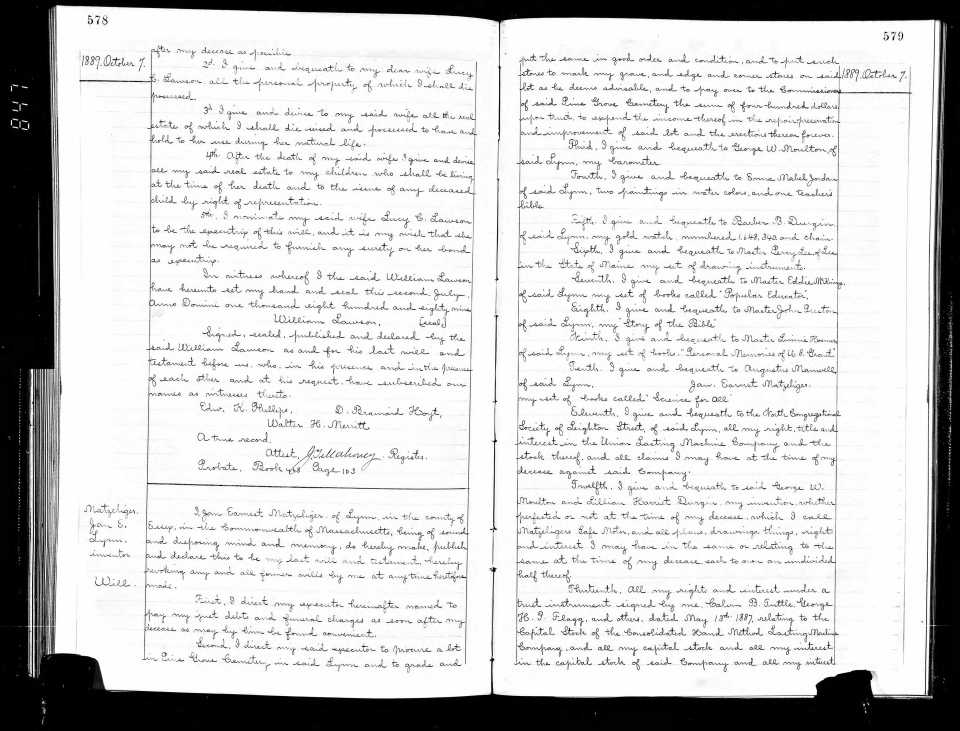 578
1889. October 7.
after my decease as possible
2d. I give and bequeath to my dear wife Lucy
C. Lawson all the personal property of which I shall die
possessed.
3d I give and devise to my said wife all the real
estate of which I shall die used and possessed to have and
hold to her use during her natural life.
4th. After the death of my said wife I give and devise
all my said real estate to my children who shall be living
at the time of her death and to the issue of any deceased
child by right of representation.
5th. I nominate my said wife Lucy C. Lawson
to be the executrix of this will, and it is my wish that she
may not be required to furnish any surety on her bond
as executrix.
In witness whereof I the said William Lawson
have hereunto set my hand and seal this second July,
Anno Domini one thousand eight hundred and eighty nine
William Lawson. [seal]
Signed, sealed, published and declared by the
said William Lawson as and for his last will and
testament before us, who, in his presence and in the presence
of each other and at his request have subscribed our
names as witnesses thereto.
Edw. K. Phillips, D. Brainard Hoyt,
Walter H. Merritt
A true record.
Attest, Register.
Probate, Book 468 Page 103
Matzeliger.
Jan E.
Lynn.
inventor
Will.
I Jan Earnest Matzeliger of Lynn, in the county of
Essex, in the Commonwealth of Massachusetts, being of sound
and disposing mind and memory, do hereby make, publish
and declare this to be my last will and testament, hereby
revoking any and all former wills by me at any time heretofore
made.
First, I direct my executor hereinafter named to
pay my just debts and funeral charges as soon after my
decease as may by him be found convenient.
Second, I direct my said executor to procure a lot
in Pine Grove Cemetery in said Lynn and to grade and
579
1889. October 7.
put the same in good order and condition, and to put such
stones to mark my grave, and edge and corner stones on said
lot as he deems advisable, and to pay over to the Commissioners
of said Pine Grove Cemetery the sum of four hundred dollars
upon trust to expend the income thereof in the repair preservation
and improvement of said lot and the erections thereon forever.
Third, I give and bequeath to George W. Moulton of
said Lynn, my barometer
Fourth, I give and bequeath to Emma Mabel Jordan
of said Lynn, two paintings in water colors, and one teacher's
bible.
Fifth. I give and bequeath to Barber B. Durgin,
of said Lynn, my gold watch numbered 1,648,342 and chain
Sixth, I give and bequeath to Master Percy Lee of Lee
in the State of Maine my set of drawing instruments.
Seventh, I give and bequeath to Master Eddie
of said Lynn my set of books called "Popular Educator".
Eighth, I give and bequeath to Master John Preston
of said Lynn, my "Story of the Bible"
Ninth, I give and bequeath to Master Linnie
of said Lynn, my set of books "Personal Memories of U. S. Grant"
Tenth. I give and bequeath to Augusta Manwell
of said Lynn, Jan. Earnst Matzeliger.
my set of books called "Science for All"
Eleventh, I give and bequeath to the North Congregational
Society of Leighton Street, of said Lynn, all my right, title and
interest in the Union Lasting Machine Company and the
stock thereof, and all claims I may have at the time of my
decease against said Company.
Twelfth, I give and bequeath to said George W.
Moulton and Lillian Harriet Durgin my invention, whether
perfected or not at the time of my decease, which I call
Matzeligers Safe Motor, and all plans, drawings things, right
and interest I may have in the same or relating to the
same at the time of my decease each to own an undivided
half thereof.
Thirteenth, All my right and interest under a
trust instrument signed by me, Calvin B. Tuttle, George
H. P. Flagg, and others, dated May 13th 1887, relating to the
Capital Stock of the Consolidated Hand Method Lasting Machine
Company, and all my capital stock and all my interest
in the capital stock of said Company and all my interest
847